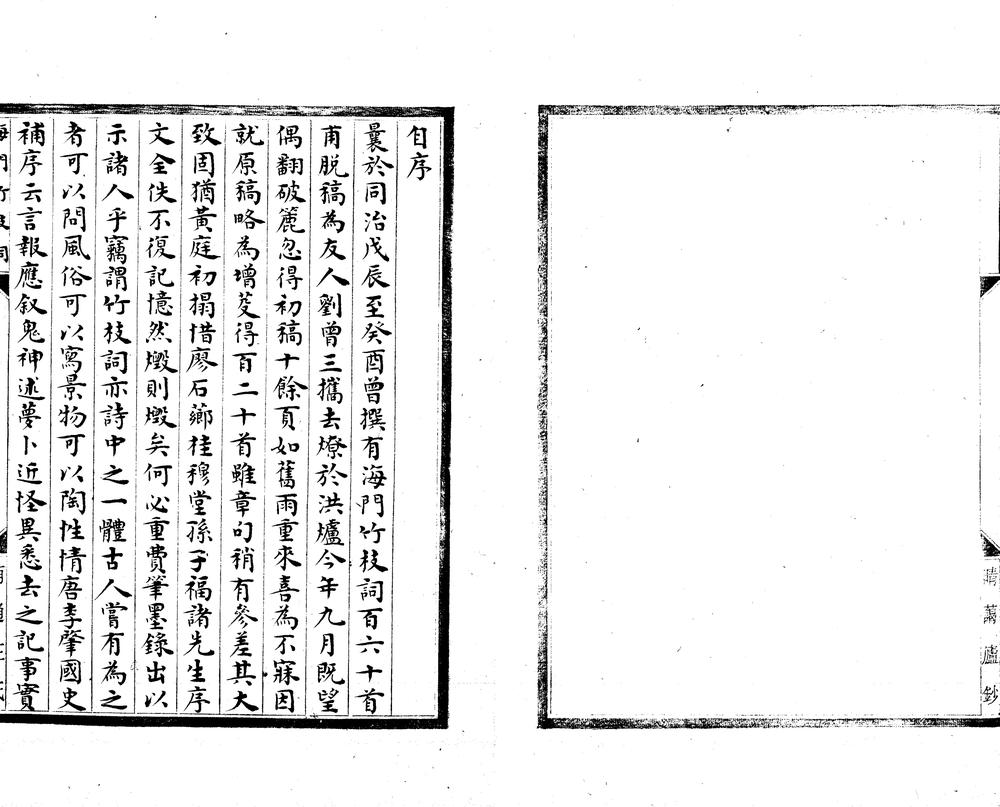 自序
曩於同治戊辰至癸酉曾撰有海門竹枝詞百六十首
甫脫稿為友人劉曾三攜去燎於洪爐今年九月既望
偶翻破簏忽得初稿十餘頁如舊雨重來喜為不寐因
就原稿略為增芟得百二十首雖章句稍有參差其大
致固猶黃庭初搨惜廖石薌桂穆堂孫子福諸先生序
文全佚不復記憶然燬則燬矣何必重費筆墨錄出以
示諸人乎竊謂竹枝詞亦詩中之一體古人嘗有為之
者可以問風俗可以寫景物可以陶性情唐李肇國史
補序云言報應叙鬼神述夢卜近怪異悉去之記事實
海門竹枝詞